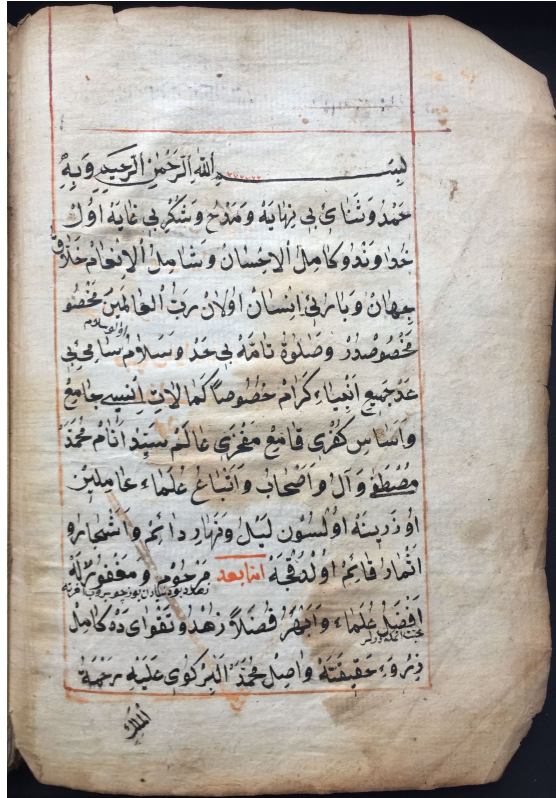 بسم الله الرحمن الرحيم وبه
حمد وثنائ بى نهايه ومدح وشكر بى غايه اول
خداوند و كامل الاحسان وشامل الانعام خلاق
جهان وبارئ انسان اولان رب العالمين مخصو
مخصوصدر وصلوة تامه بى حد وسلام سامئ بى
عد جميع انبياء كرام خصوصا كمالات انسيه جامع
واساس كفرى قامع مفخرى عالم سيد انام محمد
مصطفى وآل واصحاب واتباع علماء عاملين
اوزرينه اولسون ليل ونهار دائم واشجارو
اثمار قائم اولدقجه اما بعد مرحوم ومغفور له
افضل علماء وابهر فضلا زهد و تقواى ده كامل
ذروء حقيقته واصل محمد البركوى عليه رحمة
الملك